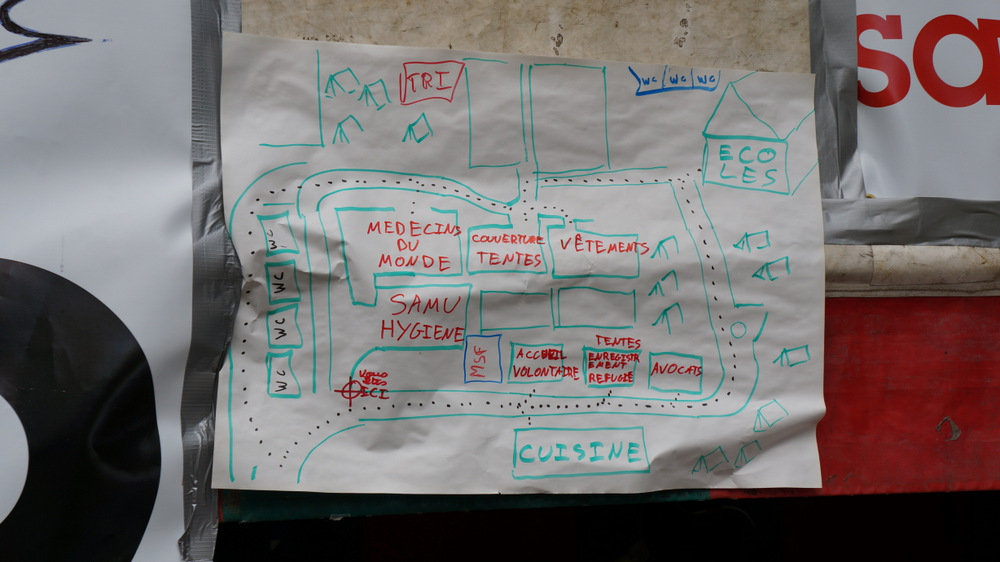 sa
TRI
WC WC WC
ECO
LES
MEDECINS
DU
MONDE
COUVERTURE
TENTES
VÊTEMENTS
WC
WC
WC
WC
SAMU
HYGIENE
MSF
ACCUEIL
VOLONTAIRE
TENTES
ENREGISTR
EMENT
REFUGIÉ
AVOCATS
VOUS
ÊTES
ICI
CUISINE